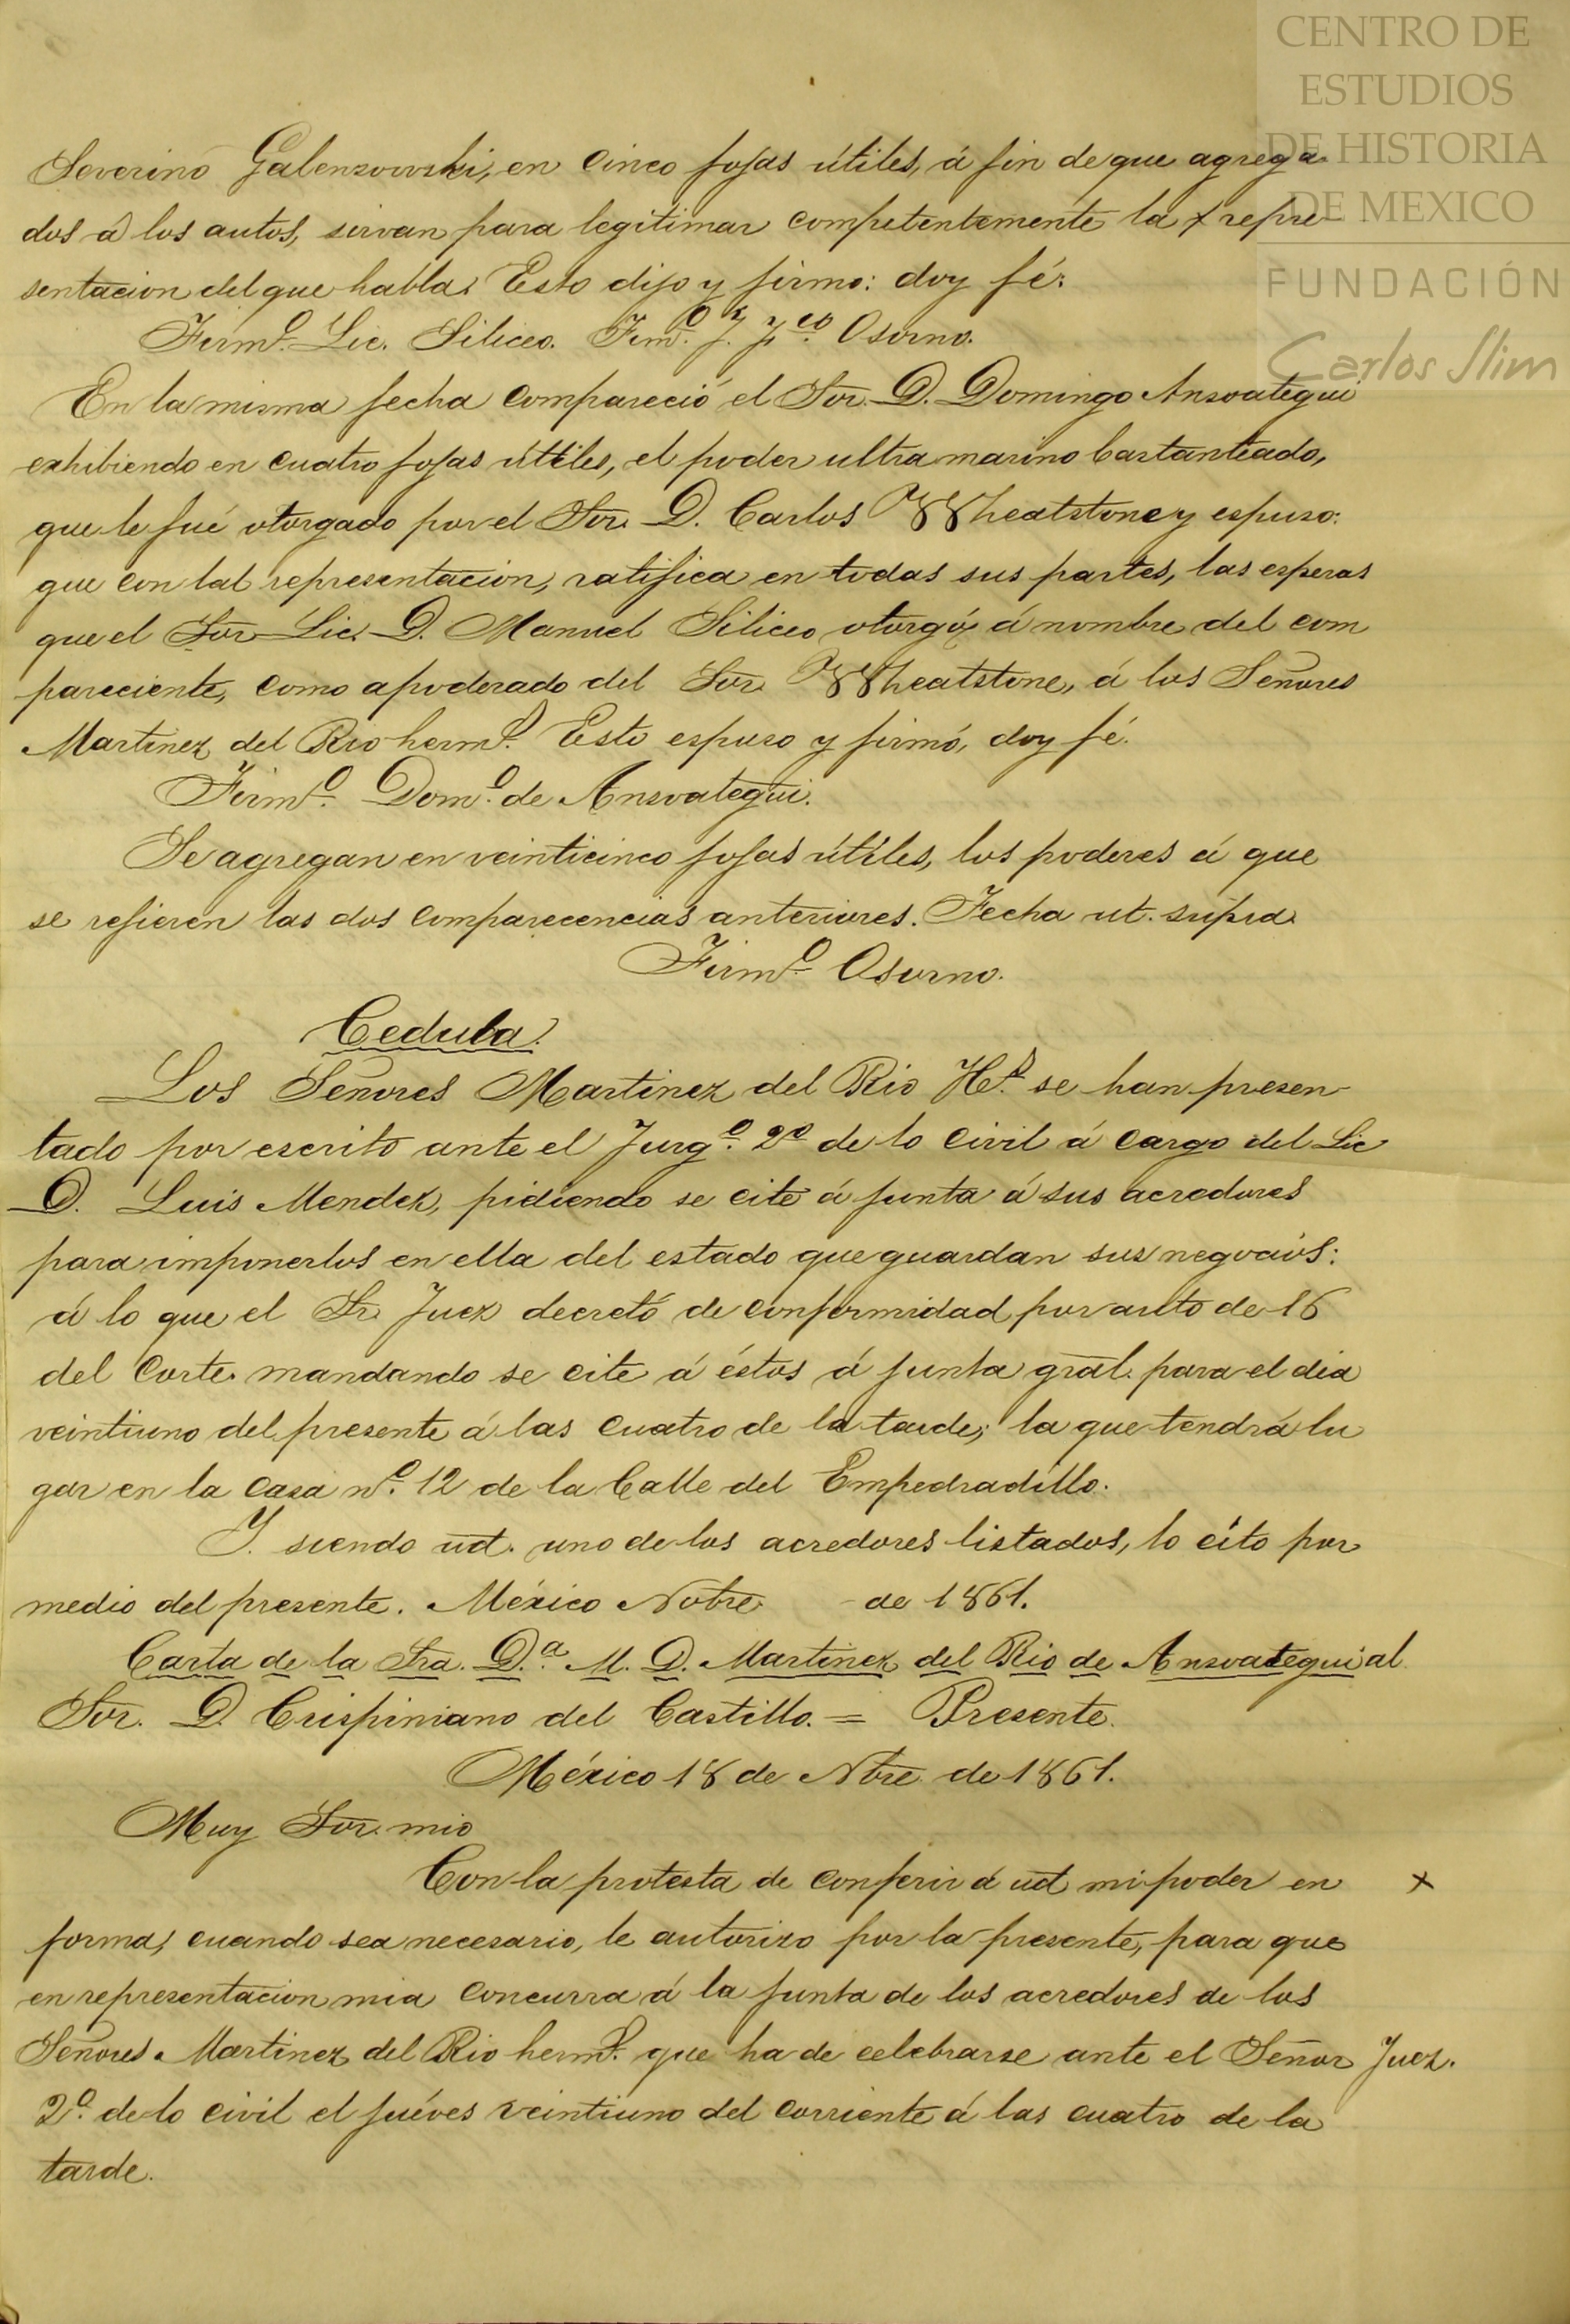 CENTRO DE
ESTUDIOS
DE HISTORIA
DE MEXICO
FUNDACIÓN
Carlos Slim
Severino Galenzowski, en cinco fojas útiles, á fin de que agrega-
dos á los autos, sirvan para legitimar competentemente la x repre-
sentacion del que habla. Esto dijo y firmo: doy fé.
Firmº. Lic. Siliceo. Firmº. J. Fco. Osorno.
En la misma fecha compareció el Sor. D. Domingo Ansoategui
exhibiendo en cuatro fojas útiles, el poder ultramarino bastanteado,
que le fué otorgado por el Sor. D. Carlos Wheatstone y espuso:
que con tal representacion, ratifica en todas sus partes, las esperas
que el Sor. Lic. D. Manuel Siliceo otorgó, á nombre del com
pareciente, como apoderado del Sor. Wheatstone, á los Señores
Martinez del Rio hermˢ. Esto espuso y firmó, doy fé.
Firmº. Domº. de Ansoategui.
Se agregan en veinticinco fojas útiles, los poderes á que
se refieren las dos comparecencias anteriores. Fecha ut. supra.
Firmº. Osorno.
Cedula.
Los Señores Martinez del Rio Hˢ. se han presen-
tado por escrito ante el Juzgº. 2º de lo civil á cargo del Lic
D. Luis Mendez, pidiendo se cite á junta á sus acredores
para imponerlos en ella del estado que guardan sus negocios:
á lo que el Sr. Juez decretó de conformidad por auto de 16
del corte. mandando se cite á éstos á junta gral. para el dia
veintiuno del presente á las cuatro de la tarde; la que tendrá lu
gar en la casa nº. 12 de la Calle del Empedradillo.
Y. siendo ud. uno de los acredores listados, lo cito por
medio del presente. México Nobre. - de 1861.
Carta de la Sra. D.ª M. D. Martinez del Rio de Ansoategui al
Sor. D. Crispiniano del Castillo. = Presente.
México 18 de Nbre de 1861.
Muy Sor. mio
Con la protesta de conferir á ud mi poder en x
forma, cuando sea necesario, le autorizo por la presente, para que
en representacion mia concurra á la junta de los acredores de los
Señores Martinez del Rio hermˢ. que ha de celebrarse ante el Señor Juez.
2º. de lo civil el juéves veintiuno del corriente á las cuatro de la
tarde.